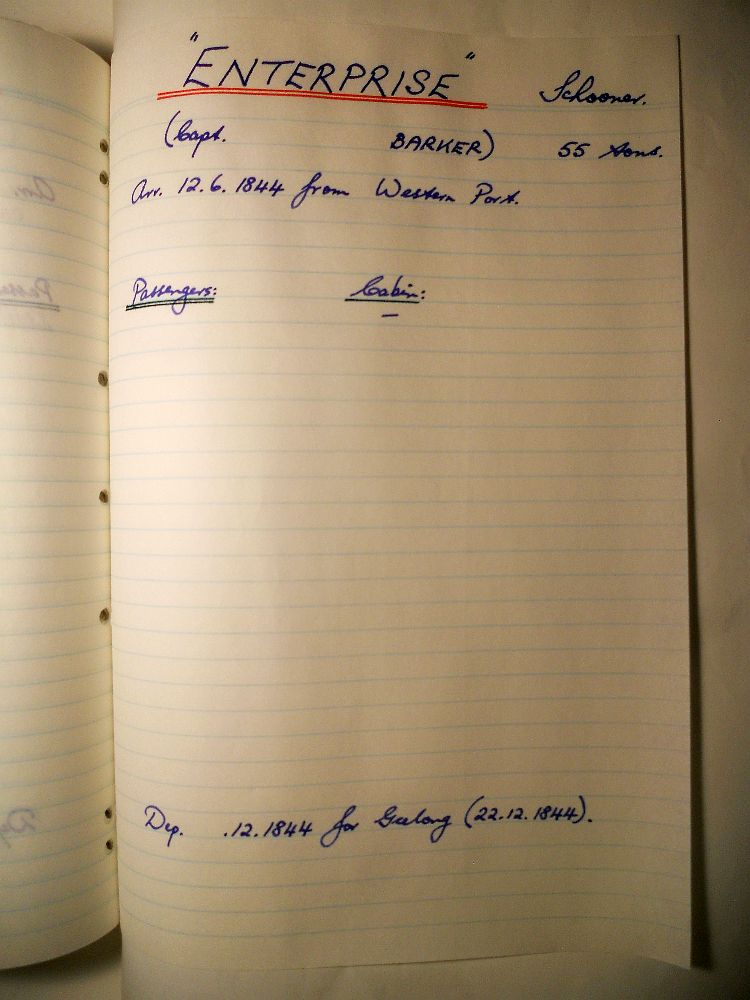 "ENTERPRISE" Schooner.
(Capt. BARKER) 55 tons.
Arr. 12.6.1844 from Western Port.
Passengers: Cabin:
—
Dep. .12.1844 for Geelong (22.12.1844).